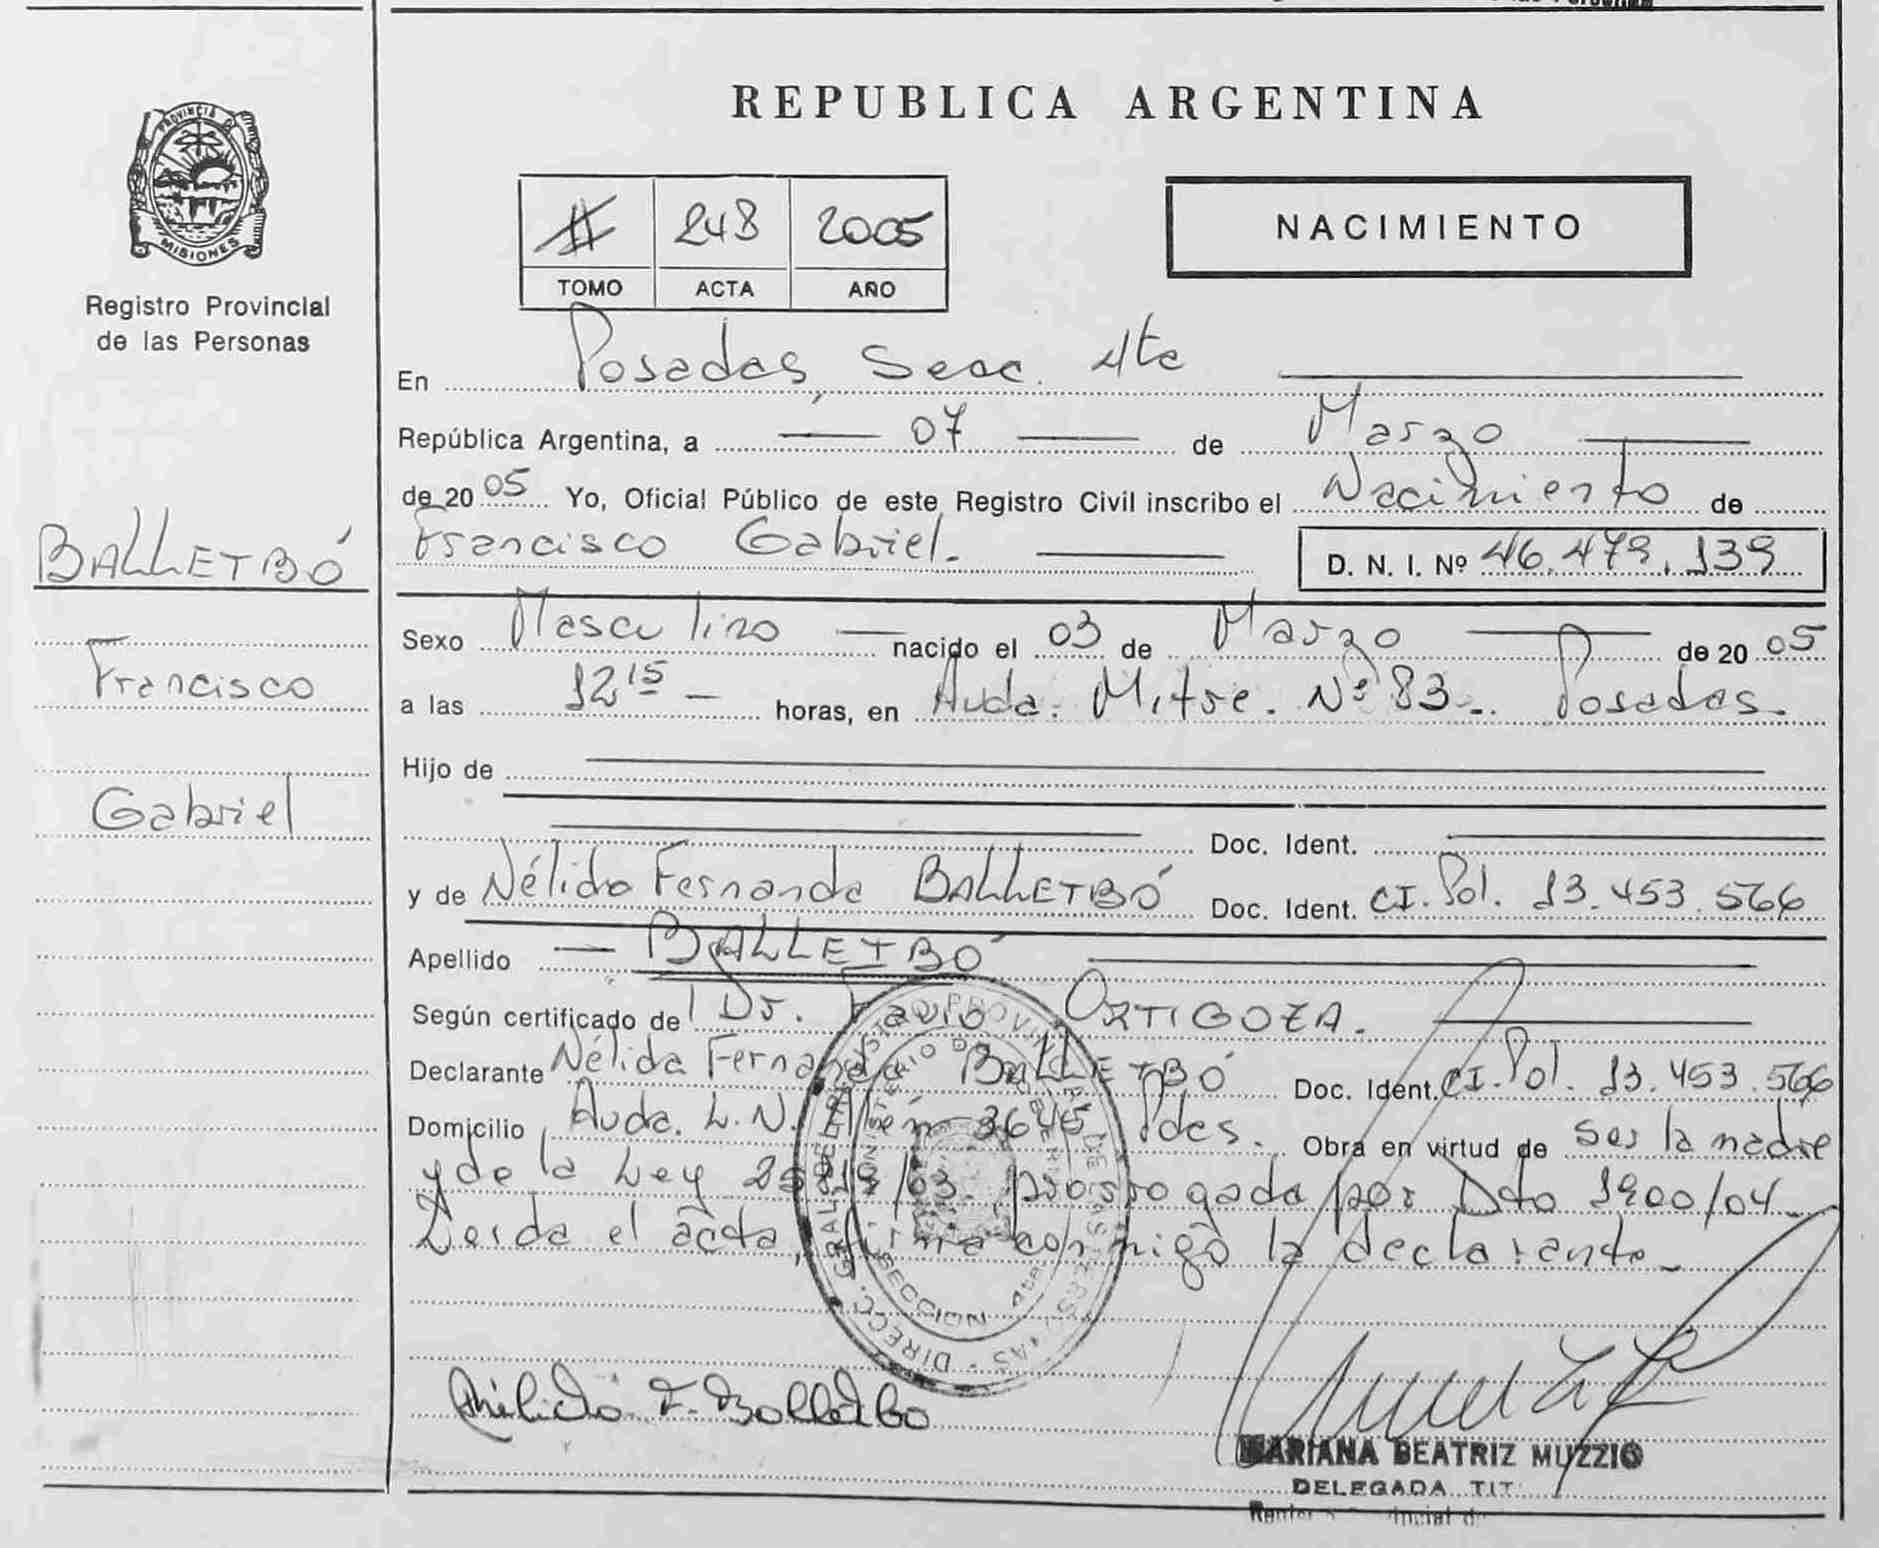 REPUBLICA ARGENTINA
PROVINCIA DE
MISIONES
Registro Provincial
de las Personas
BALLETBÓ
Francisco
Gabriel
248 2005
TOMO ACTA AÑO
NACIMIENTO
En Posadas, Secc. 4ta
República Argentina, a 07 de Marzo
de 2005 Yo, Oficial Público de este Registro Civil inscribo el Nacimiento de
Francisco Gabriel. D. N. I. Nº 46.479.139
Sexo Masculino nacido el 03 de Marzo de 2005
a las 12 15 horas, en Avda. Mitre. Nº 83. Posadas.
Hijo de
Doc. Ident.
y de Nélida Fernanda BALLETBÓ Doc. Ident. CI. Pol. 13.453.566
Apellido BALLETBÓ
Según certificado del Dr. Favio ORTIGOZA.
Declarante Nélida Fernanda BALLETBÓ Doc. Ident. CI. Pol. 13.453.566
Domicilio Avda. L.N. Alén 3645 Pdas. Obra en virtud de ser la madre
y de la Ley prorrogada por Dto 1900/04.
Leída el acta, firma conmigo la declarante.
MARIANA BEATRIZ MUZZIO
DELEGADA TIT